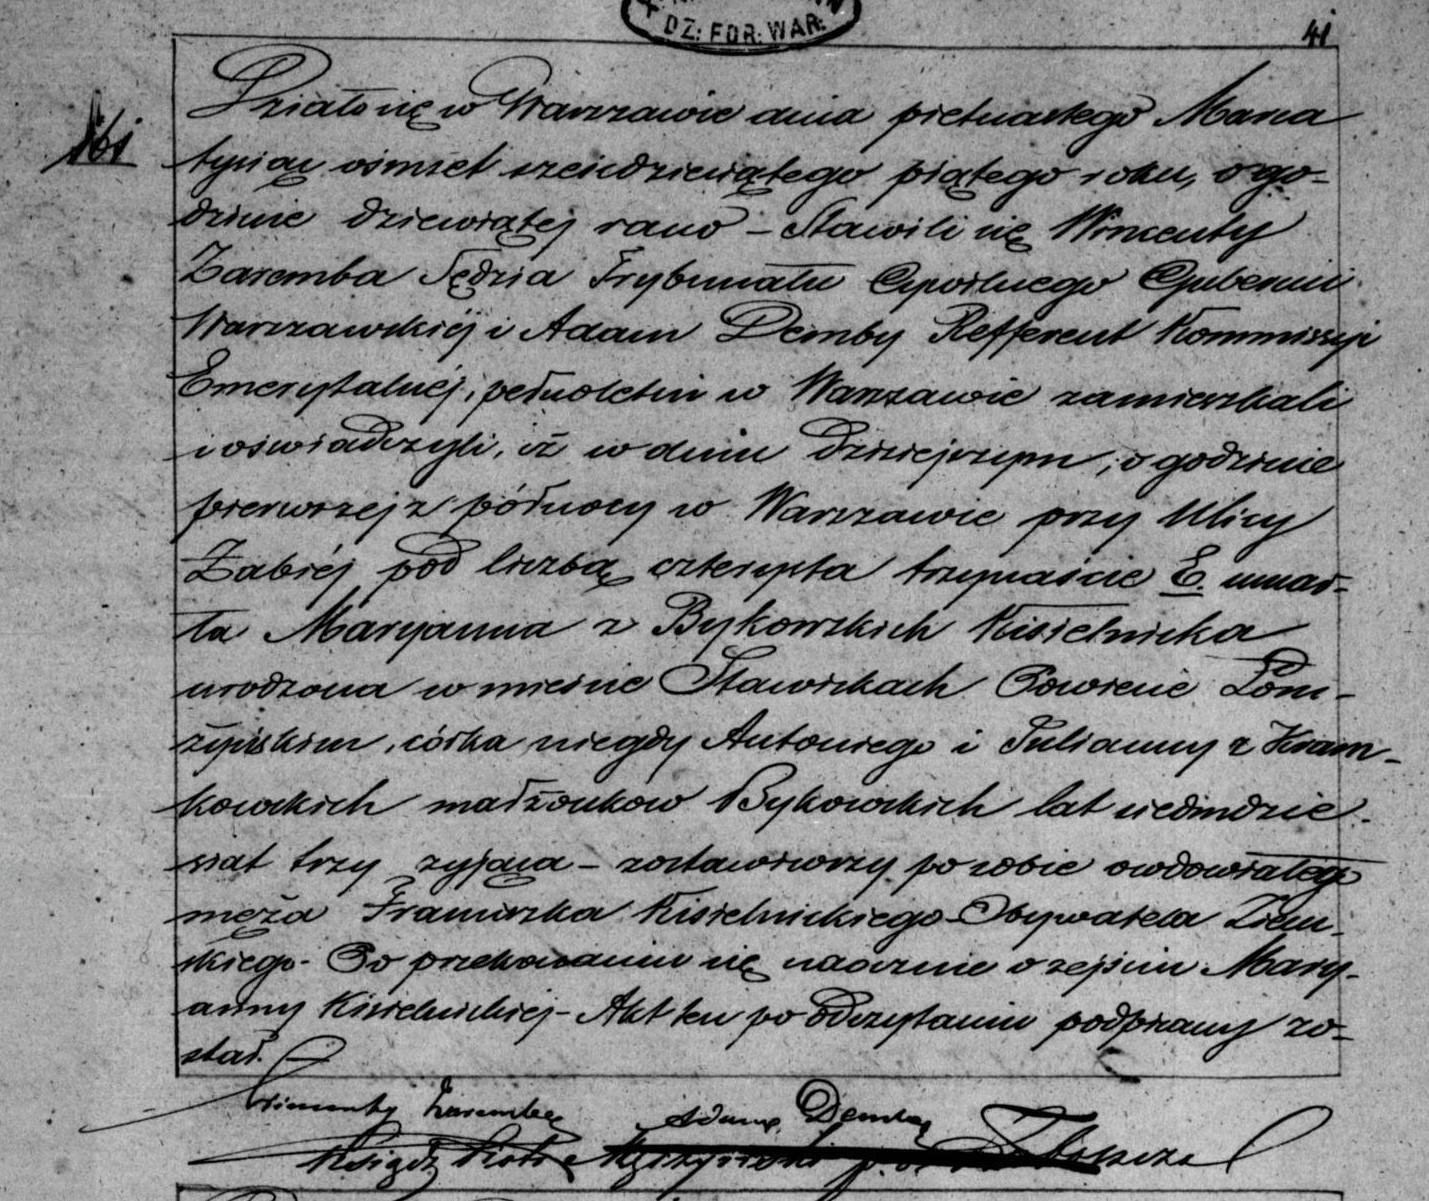 DZ: FDR: WAR:
41
161
Działo się w Warszawie dnia piętnastego Marca
tysiąc ośmset sześćdziesiątego piątego roku, o go-
dzinie dziewiątej rano – Stawili się Wincenty
Zaremba Sędzia Trybunału Cywilnego Gubernii
Warszawskiéj i Adam Demby Refferent Kommissyi
Emerytalnéj, pełnoletni w Warszawie zamieszkali
i oświadczyli, iż w dniu dzisiejszym, o godzinie
pierwszej z północy w Warszawie przy Ulicy
Żabiéj pod liczbą czterysta trzynaście E. umar-
ła Maryanna z Bykowskich Kisielnicka
urodzona w mieście Stawiskach Powiecie Łom-
żyńskim, córka niegdy Antoniego i Julianny z Kram-
kowskich małżonków Bykowskich lat siedmdzie-
siat trzy żyjąca – zostawiwszy po sobie owdowiałego
męża Franciszka Kisielnickiego Obywatela Ziem-
skiego. Po przekonaniu się naocznie o zejściu Mary-
anny Kisielnickiej – Akt ten po odczytaniu podpisany zo-
stał.
Wincenty Zaremba Adam Demby
Ksiądz Piotr